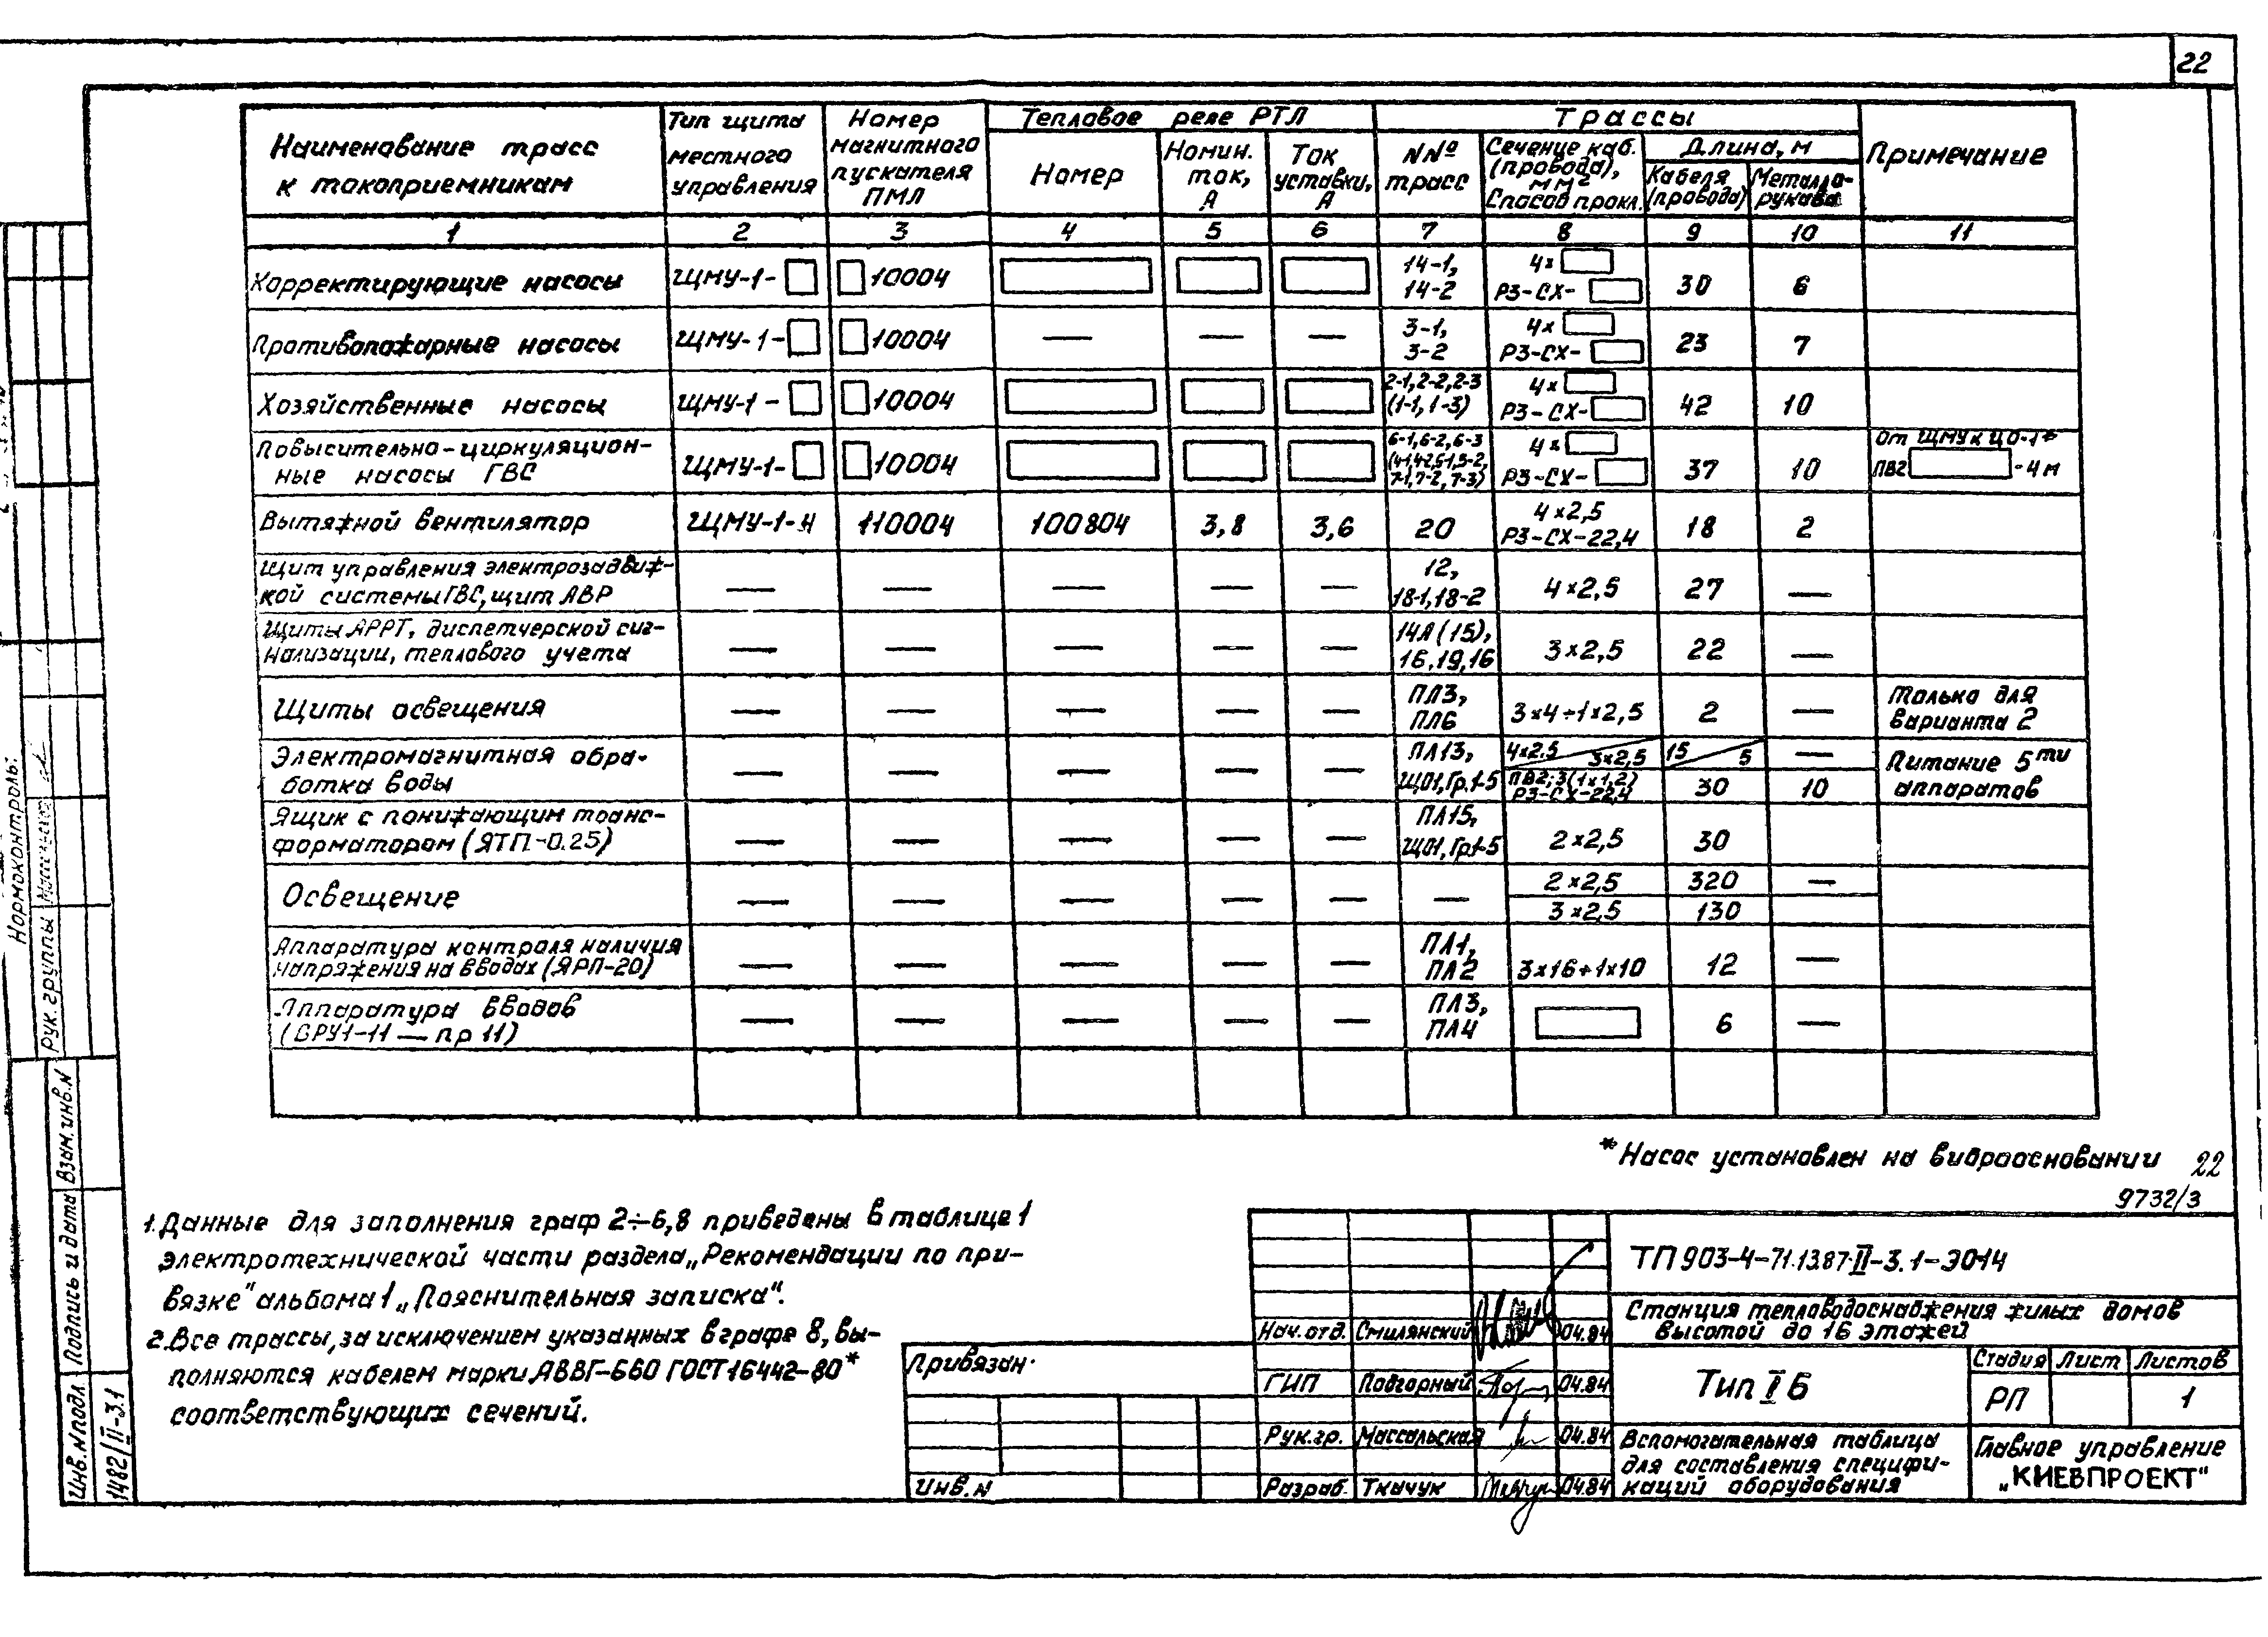 22
Наименование трасс к токоприемникам
Тип щита местного управления
Номер магнитного пускателя ПМЛ
Тепловое реле РТЛ
Номер
Номин. ток, А
Ток уставки, А
Трассы
NNº трасс
Сечение каб. (провода), мм2 Способ прокл.
Длина, м
Кабеля (провода)
Металло-рукава
Примечание
1 2 3 4 5 6 7 8 9 10 11
Корректирующие насосы ЩМУ-1- 10004 14-1, 14-2 4× РЗ-СХ- 30 6
Противопожарные насосы ЩМУ-1- 10004 — — — 3-1, 3-2 4× РЗ-СХ- 23 7
Хозяйственные насосы ЩМУ-1- 10004 2-1, 2-2, 2-3 (1-1, 1-3) 4× РЗ-СХ- 42 10
Повысительно-циркуляцион-
ные насосы ГВС ЩМУ-1- 10004 6-1, 6-2, 6-3 (4-1, 4-2, 5-1, 5-2, 7-1, 7-2, 7-3) 4× РЗ-СХ- 37 10 От ЩМУ к ЦО-1* ПВ2 - 4м
Вытяжной вентилятор ЩМУ-1-Н 110004 100804 3,8 3,6 20 4×2,5 РЗ-СХ-22,4 18 2
Щит управления электрозадвиж-
кой системы ГВС, щит АВР — — — — — 12, 18-1, 18-2 4×2,5 27 —
Щиты АРРТ, диспетчерской сиг-
нализации, теплового учета — — — — — 14А (15), 16, 19, 16 3×2,5 22 —
Щиты освещения — — — — — ПЛ3, ПЛ6 3×4+1×2,5 2 — Только для варианта 2
Электромагнитная обра-
ботка воды — — — — — ПЛ13, ЩО1, Гр.1-5 4×2.5 3×2,5 15 5 —
ПВ2; 3(1×1,2) РЗ-СХ-22,4 30 10 Питание 5ти аппаратов
Ящик с понижающим транс-
форматором (ЯТП-0.25) — — — — — ПЛ15, ЩО1, Гр1-5 2×2,5 30
Освещение — — — — — — 2×2,5 320 —
3×2,5 130
Аппаратура контроля наличия
напряжения на вводах (ЯРП-20) — — — — — ПЛ1, ПЛ2 3×16+1×10 12 —
Аппаратура вводов
(ВРУ1-11 — пр 11) — — — — — ПЛ3, ПЛ4 6 —
*Насос установлен на виброосновании 22
9732/3
1. Данные для заполнения граф 2÷6, 8 приведены в таблице 1
электротехнической части раздела „Рекомендации по при-
вязке" альбома 1 „Пояснительная записка".
2. Все трассы, за исключением указанных в графе 8, вы-
полняются кабелем марки АВВГ-660 ГОСТ 16442-80*
соответствующих сечений.
Привязан
Инв. N
Нач. отд. Смилянский 04.84
ГИП Подгорный 04.84
Рук. гр. Массальская 04.84
Разраб. Ткачук 04.84
ТП 903-4-71.13.87-II-3.1-ЭО14
Станция тепловодоснабжения жилых домов
высотой до 16 этажей
Тип I Б
Стадия Лист Листов
РП 1
Вспомогательная таблица
для составления специфи-
каций оборудования
Главное управление
„КИЕВПРОЕКТ"
Нормоконтроль:
Рук. группы
Взам. инв. N
Подпись и дата
Инв. N подл.
1482/II-3.1